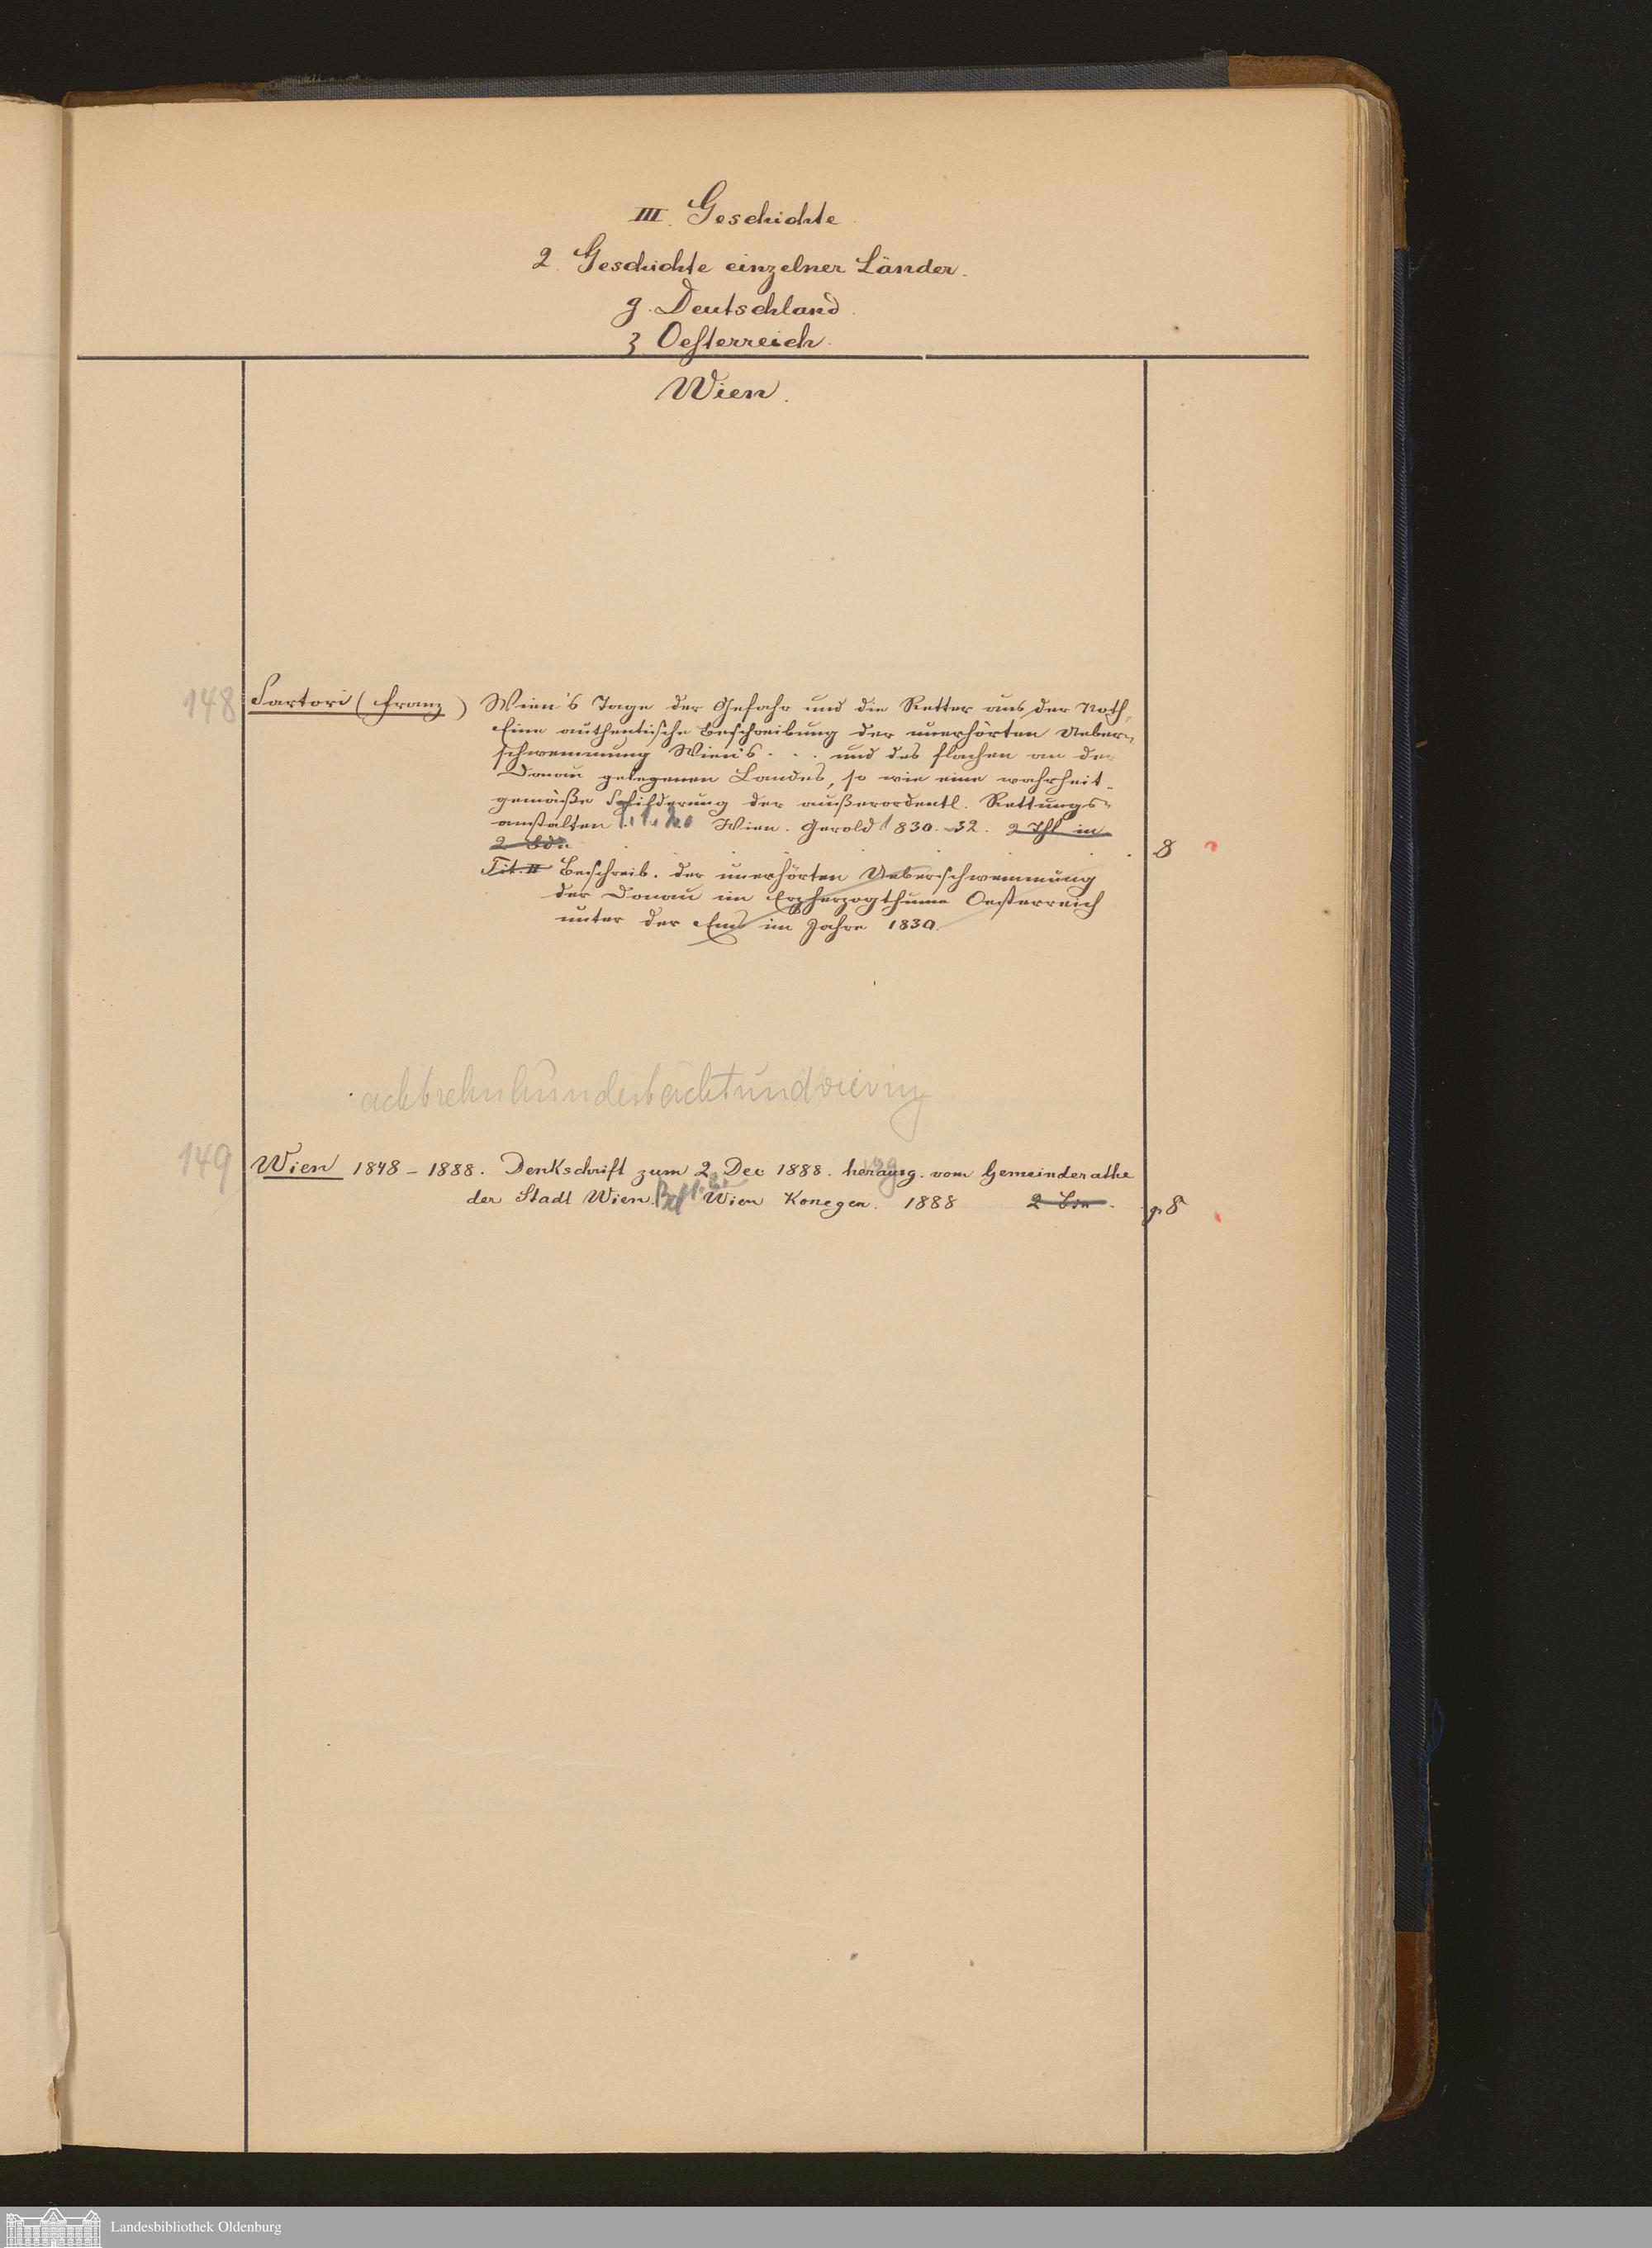 III. Geschichte
2. Geschichte einzelner Länder.
g. Deutschland.
3 Oesterreich.
Wien.
148 Sartori (Franz) Wien's Tage der Gefahr und die Retter aus der Noth,
Eine authentische Beschreibung der unerhörten Ueber-
schwemmung Wien's . . . und des flachen an der
Donau gelegenen Landes, so wie eine wahrheit-
gemäße Schilderung der außerordentl. Rettungs-
anstalten Wien. Gerold 1830.-32. 2 Thl in
2 Bdn 8
Tit. II Beschreib. der unerhörten Ueberschwemmung
der Donau im Erzherzogthume Oesterreich
unter der Ens im Jahre 1830.
achtzehnhundertachtundvierzig
149 Wien 1848-1888. Denkschrift zum 2. Dec 1888. herausg. vom Gemeinderathe
der Stadt Wien. Bd 1. 2. Wien Konegen. 1888 2 Bde. gr 8
Landesbibliothek Oldenburg